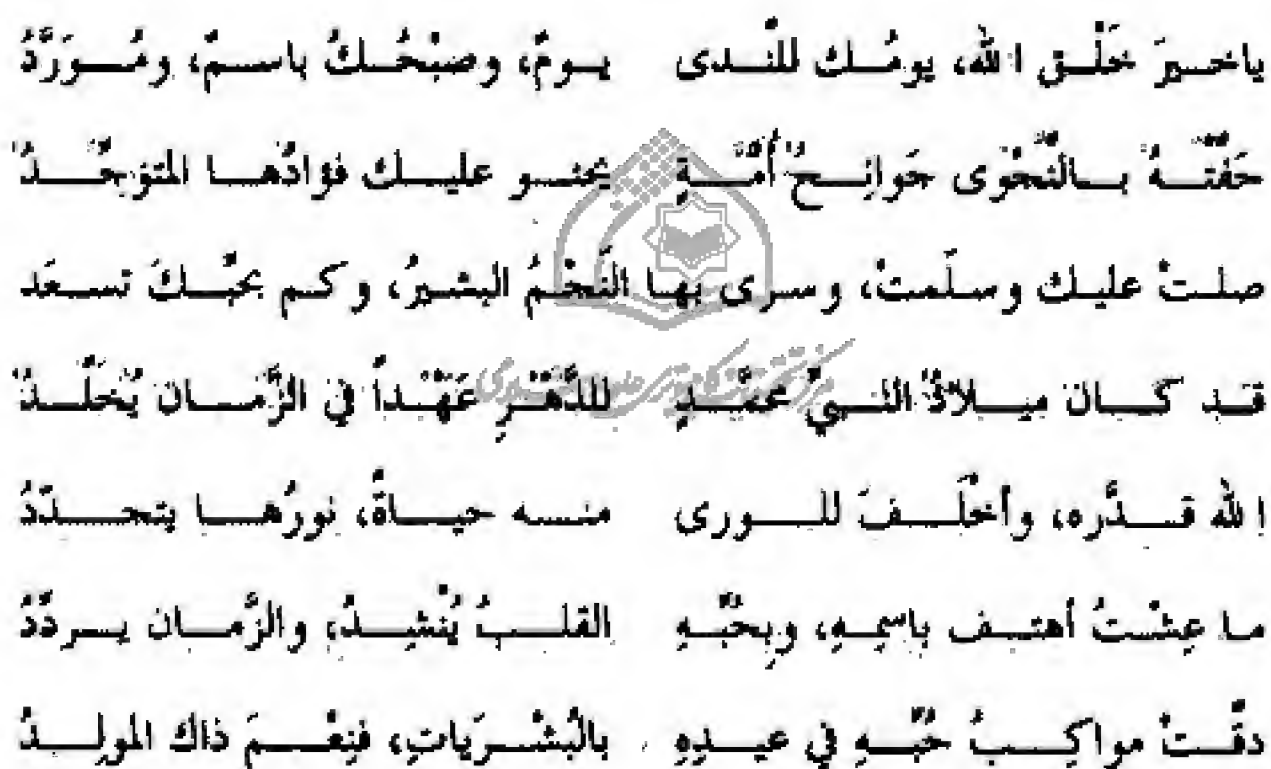 ياخيرَ خَلْق الله، يومُك للنَّدى يومٌ، وصبْحُكُ باسمٌ، ومُورَّدُ
حَفَّتْهُ بالنَّجْوى جَوانِحُ أمَّةٍ يحنو عليك فؤادُها المتوجِّدُ
صلتْ عليك وسلَمتْ، وسرى بها النَّجْمُ البشيرُ، وكم بحبِّكَ تسعَد
قد كان ميلادُ النبيِّ محمَّدٍ للدَّهْرِ عَهْداً في الزَّمان يُخَلَّدُ
الله قدَّره، وأخْلَفَ للورى منه حياةً، نورُها يتجدّدُ
ما عِشْتُ أهتف باسمِهِ، وبحُبِّهِ القلبُ يُنْشِدُ، والزَّمان يردّدُ
دقَّتْ مواكِبُ حُبِّهِ في عيدِهِ بالْبشْرَياتِ، فنِعْمَ ذاك المولِدُ